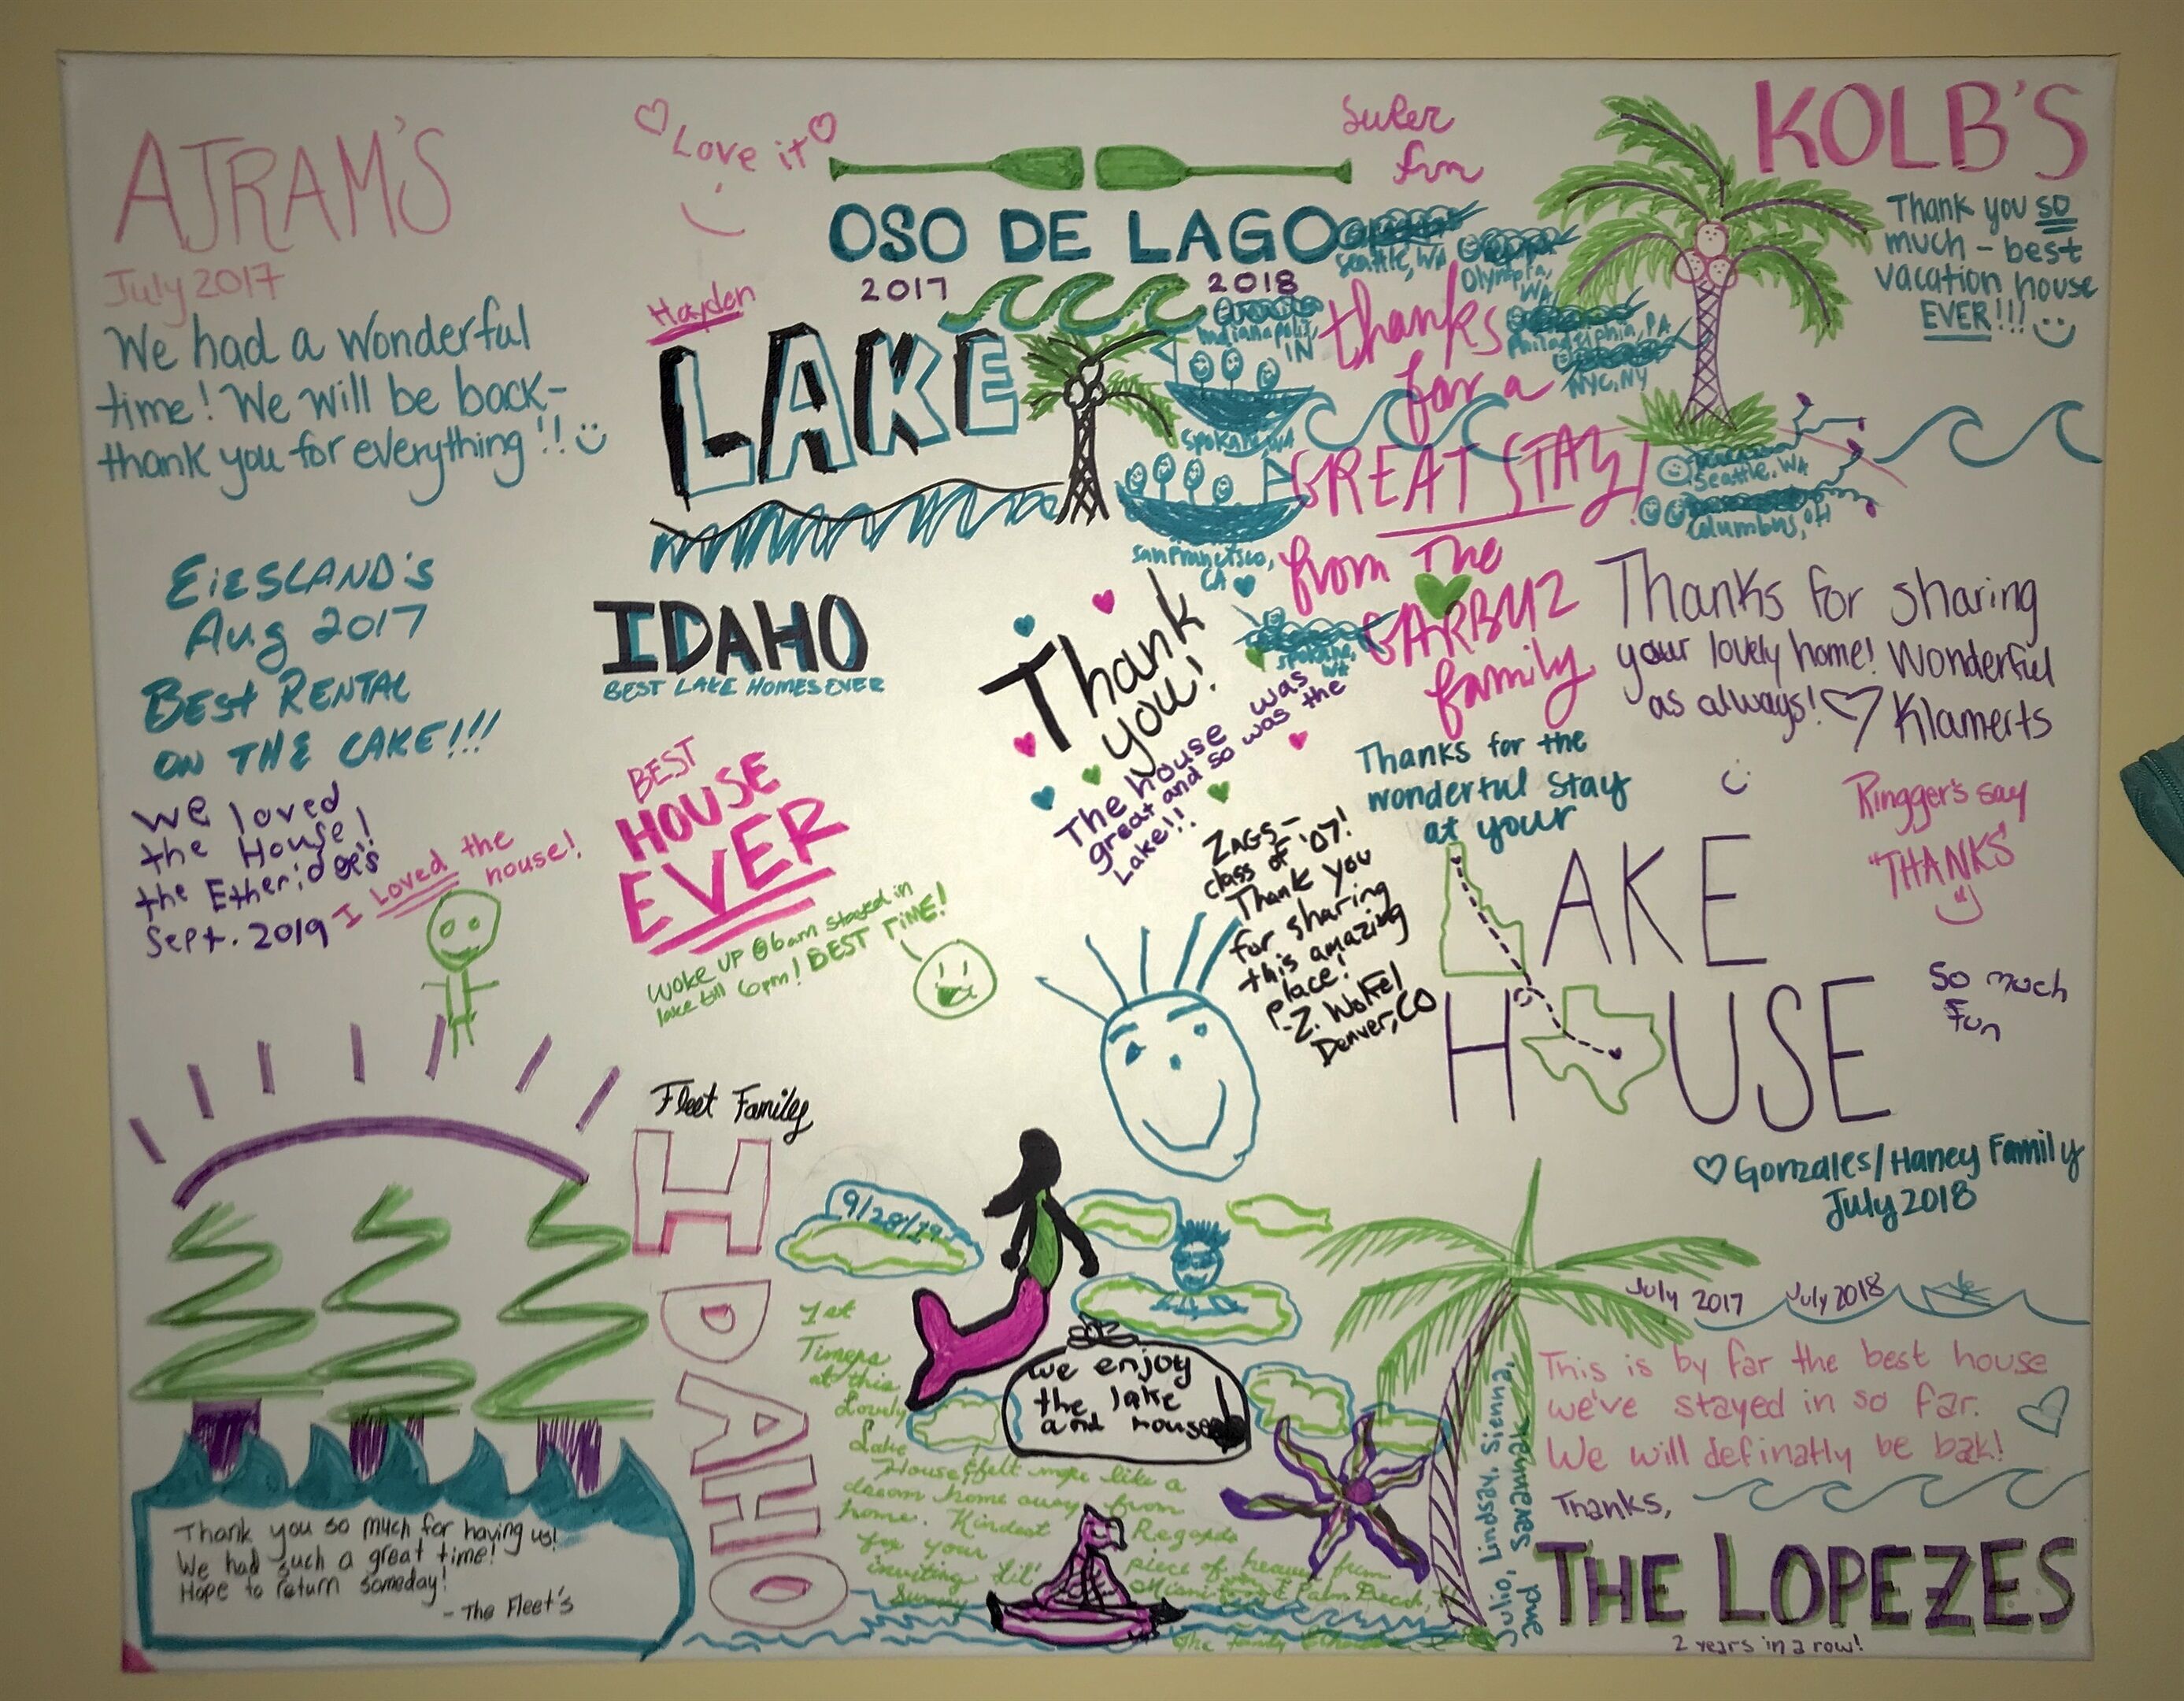 AJRAM'S
July 2017
We had a wonderful
time! We will be back-
thank you for everything!!
Love it
OSO DE LAGO
2017 2018
Super
fun
KOLB'S
Thank you so
much - best
vacation house
EVER!!!
Hayden
LAKE
IDAHO
BEST LAKE HOMES EVER
Seattle, WA
Olympia,
WA
Indianapolis,
IN
Philadelphia, PA
NYC, NY
Spokane, WA
San Francisco,
CA
Seattle, WA
Columbus, OH
Spokane,
WA
thanks
for a
GREAT STAY!
from The
GARBUZ
family
EiESLAND'S
Aug 2017
BEST RENTAL
ON THE LAKE!!!
We loved
the House!
the Etheridges
Sept. 2019
I Loved the
house!
BEST
HOUSE
EVER
WOKE UP @ 6am stayed in
lake till 6pm! BEST TIME!
Thank
you!
The house was
great and so was the
Lake!!
ZAGS-
class of '07!
Thank you
for sharing
this amazing
place!
-Z. Wolfel
Denver, CO
Thanks for sharing
your lovely home! Wonderful
as always! Klamerts
Thanks for the
wonderful stay
at your
LAKE
HOUSE
Gonzales/Haney Family
July 2018
Ringger's say
"THANKS"
So much
Fun
Fleet Family
IDAHO
Thank you so much for having us!
We had such a great time!
Hope to return someday!
- The Fleet's
9/28/19
1st
Timers
at this
Lovely
Lake
House & felt more like a
dream home away from
home. Kindest Regards
for your piece of heaven from
inviting lil'
Miami & Palm Beach,
The Family
we enjoy
the lake
and house
Julio, Lindsay, Sienna,
and Savannah
July 2017 July 2018
This is by far the best house
we've stayed in so far.
We will definatly be bak!
Thanks,
THE LOPEZES
2 years in a row!